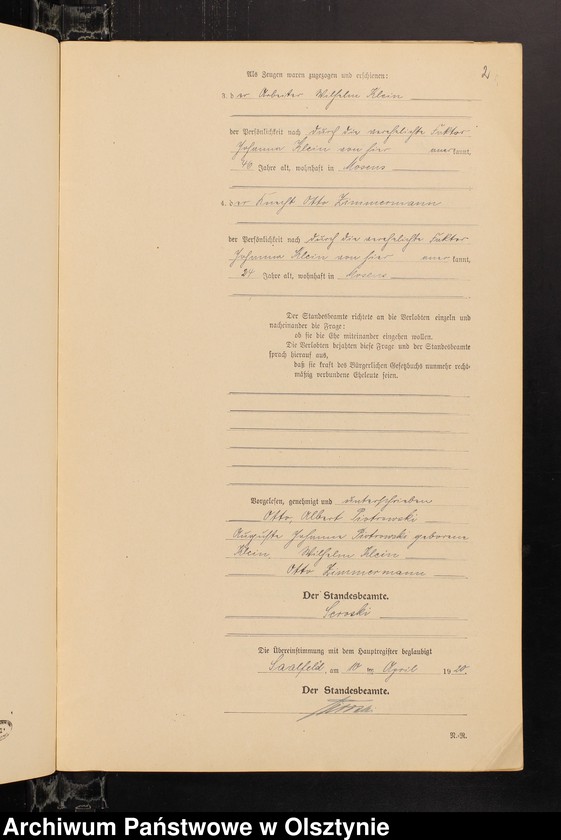 2
Als Zeugen waren zugezogen und erschienen:
3. der Arbeiter Wilhelm Klein
der Persönlichkeit nach durch die verehelichte Faktor
Johanna Klein von hier anerkannt,
40 Jahre alt, wohnhaft in Mosens
4. der Knecht Otto Zimmermann
der Persönlichkeit nach durch die verehelichte Faktor
Johanna Klein von hier anerkannt,
24 Jahre alt, wohnhaft in Mosens
Der Standesbeamte richtete an die Verlobten einzeln und
nacheinander die Frage:
ob sie die Ehe miteinander eingehen wollen.
Die Verlobten bejahten diese Frage und der Standesbeamte
sprach hierauf aus,
daß sie kraft des Bürgerlichen Gesetzbuchs nunmehr recht-
mäßig verbundene Eheleute seien.
Vorgelesen, genehmigt und unterschrieben
Otto, Albert Piotrowski
Auguste Johanna Piotrowski geborene
Klein. Wilhelm Klein
Otto Zimmermann
Der Standesbeamte.
Die Übereinstimmung mit dem Hauptregister beglaubigt
Saalfeld, am 10 ten April 1920.
Der Standesbeamte.
N.-R.
Archiwum Państwowe w Olsztynie